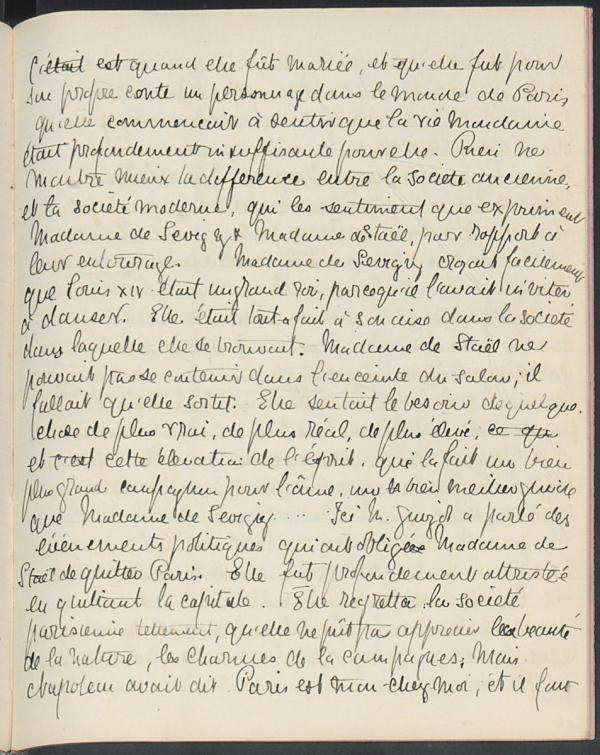 C'était est quand elle fût mariée, et qu'elle fut pour
son propre conte un personnage dans le monde de Paris
qu'elle commencait à sentir que la vie mondaine
était profondement insuffisante pour elle. Rien ne
montre mieux la difference entre la societé ancienne,
et la societé moderne, qui les sentiment que expriment
Madame de Sevigny & Madame de Staël, par rapport à
leur entourage. Madame de Sevigny croyait facilement
que Louis XIV était un grand roi, parcequ'il l'avait inviter
à danser. Elle était tout a fait à son aise dans la societé
dans laquelle elle se trouvait. Madame de Staël ne
pouvait pas se contenir dans l'enceinte du salon; il
fallait qu'elle sortet. Elle sentait le besoin de quelque
chose de plus vrai, de plus réal, de plus élevé, ce qui
et c'est cette élevation de l'esprit, que la fait un bien
plus grand compagnon pour l'âme, un bien meilleur guide
que Madame de Sevigny .... Ici M. Guizot a parlé des
évènements politiques qui ont obligée Madame de
Staël de quitter Paris. Elle fut profondement attristée
en quittant la capitale. Elle regretta la societé
parisienne tellement, qu'elle ne pût pas apprecier les beauté
de la nature, les charmes de la campagnes; Mais
Napoleon avait dit Paris est mon chez moi, et il faut